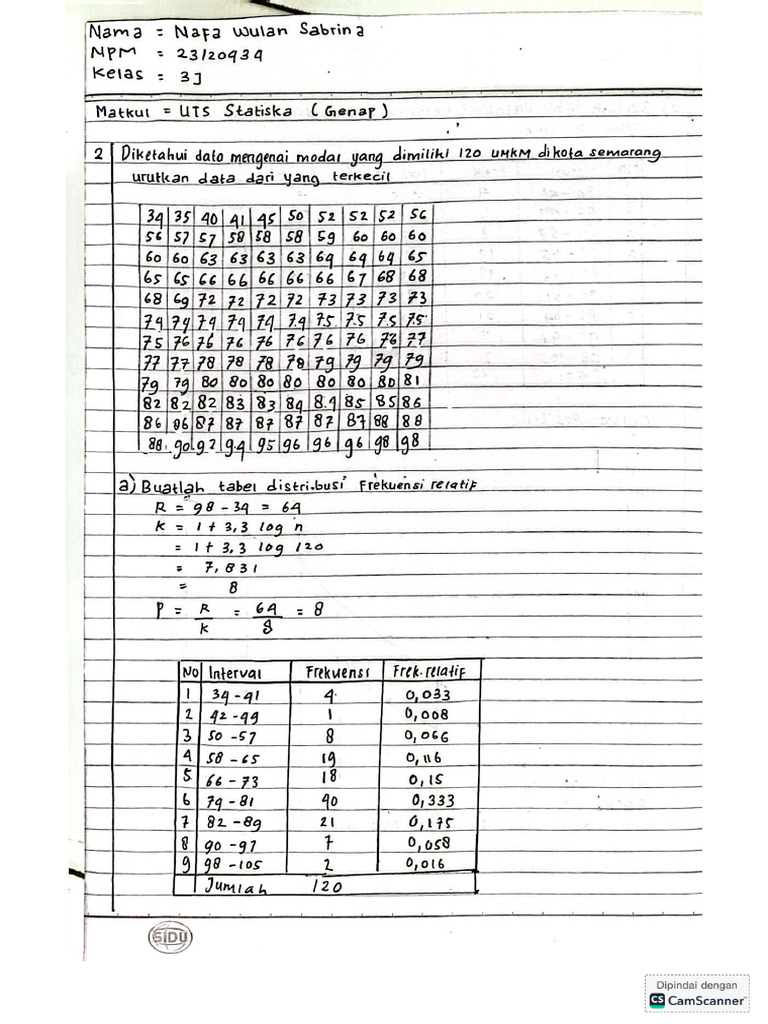 Nama = Nafa Wulan Sabrina
NPM = 23120434
Kelas = 3J
Matkul = UTS Statiska (Genap)
2 Diketahui data mengenai modal yang dimiliki 120 UMKM dikota semarang
urutkan data dari yang terkecil
34 35 40 41 45 50 52 52 52 56
56 57 57 58 58 58 59 60 60 60
60 60 63 63 63 63 64 64 64 65
65 65 66 66 66 66 66 67 68 68
68 69 72 72 72 72 73 73 73 73
74 74 74 74 74 74 75 75 75 75
75 76 76 76 76 76 76 76 76 77
77 77 78 78 78 78 79 79 79 79
79 79 80 80 80 80 80 80 80 81
82 82 82 83 83 84 84 85 85 86
86 86 87 87 87 87 87 87 88 88
88 90 92 94 95 96 96 96 98 98
a) Buatlah tabel distribusi Frekuensi relatif
R = 98 - 34 = 64
K = 1 + 3,3 log n
= 1 + 3,3 log 120
= 7,831
= 8
P = R/K = 64/8 = 8
No Interval Frekuensi Frek. relatif
1 34 - 41 4 0,033
2 42 - 49 1 0,008
3 50 - 57 8 0,066
4 58 - 65 19 0,116
5 66 - 73 18 0,15
6 74 - 81 40 0,333
7 82 - 89 21 0,175
8 90 - 97 7 0,058
9 98 - 105 2 0,016
Jumlah 120
SIDU
Dipindai dengan
CS CamScanner